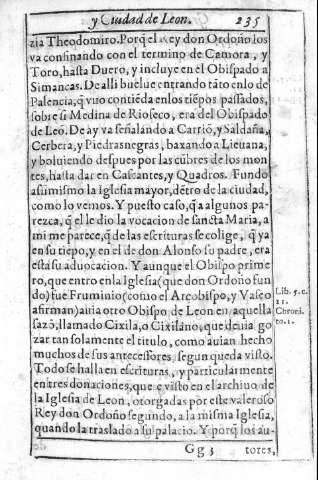 y Ciudad de Leon. 235
zia Theodomiro. Porq̃ el Rey don Ordoño los
va confinando con el termino de Camora, y
Toro, hasta Duero, y incluye en el Obispado a
Simancas. De alli buelue entrando tãto enlo de
Palencia, q̃ vuo contiẽda en los tiẽpos passados,
sobre si Medina de Rioseco, era del Obispado
de Leõ. De ay va señalando a Carriõ, y Saldaña,
Cerbera, y Piedrasnegras, baxando a Lieuana,
y boluiendo despues por las cũbres de los mon
tes, hasta dar en Cascantes, y Quadros. Fundo
assimismo la Iglesia mayor, dẽtro de la ciudad,
como lo vemos. Y puesto caso, q̃ a algunos pa-
rezca, q̃ el le dio la vocacion de sancta Maria, a
mi me parece, q̃ de las escrituras se colige, q̃ ya
en su tiẽpo, y en el de don Alonso su padre, era
esta su aduocacion. Y aunque el Obispo prime
ro, que entro en la Iglesia (que don Ordoño fun
do) fue Fruminio (como el Arcobispo, y Vaseo
afirman) auia otro Obispo de Leon en aquella
sazõ, llamado Cixila, o Cixilano, que deuia go
zar tan solamente el titulo, como auian hecho
muchos de sus antecessores, segun queda visto.
Todo se halla en escrituras, y particularmente
en tres donaciones, que e visto en el archiuo de
la Iglesia de Leon, otorgadas por este valeroso
Rey don Ordoño segundo, a la misma Iglesia,
quando la traslado a su palacio. Y porq̃ los au-
Gg3 tores,
Lib. 5. c.
11.
Chroni.
to. 1.